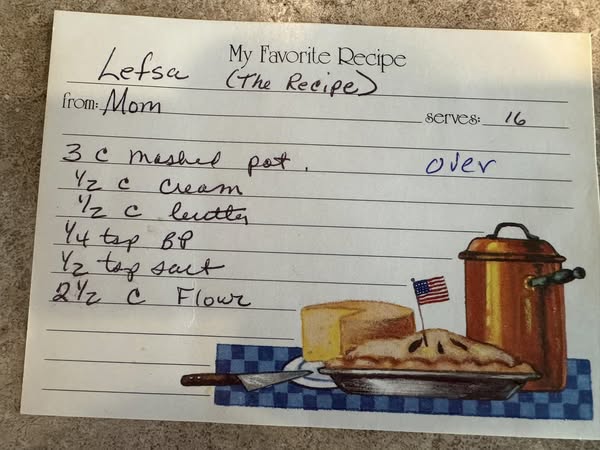 My Favorite Recipe
Lefsa (The Recipe)
from: Mom
serves: 16
3 c mashed pot. over
1/2 c cream
1/2 c butter
1/4 tsp BP
1/2 tsp salt
2 1/2 c Flour